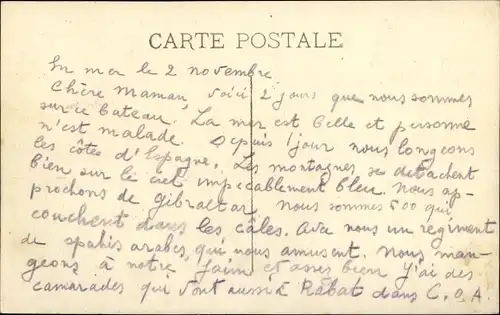 CARTE POSTALE
En mer le 2 novembre
Chère Maman, voici 2 jours que nous sommes
sur ce bateau. La mer est belle et personne
n'est malade. Depuis 1 jour nous longeons
les côtes d'Espagne. Les montagnes se détachent
bien sur le ciel impeccablement bleu. Nous ap-
prochons de Gibraltar. Nous sommes 500 qui
couchent dans les câles. Avec nous un régiment
de spahis arabes, qui nous amusent. Nous man-
geons à notre faim et assez bien j'ai des
camarades qui vont aussi à Rabat dans C.O.A.